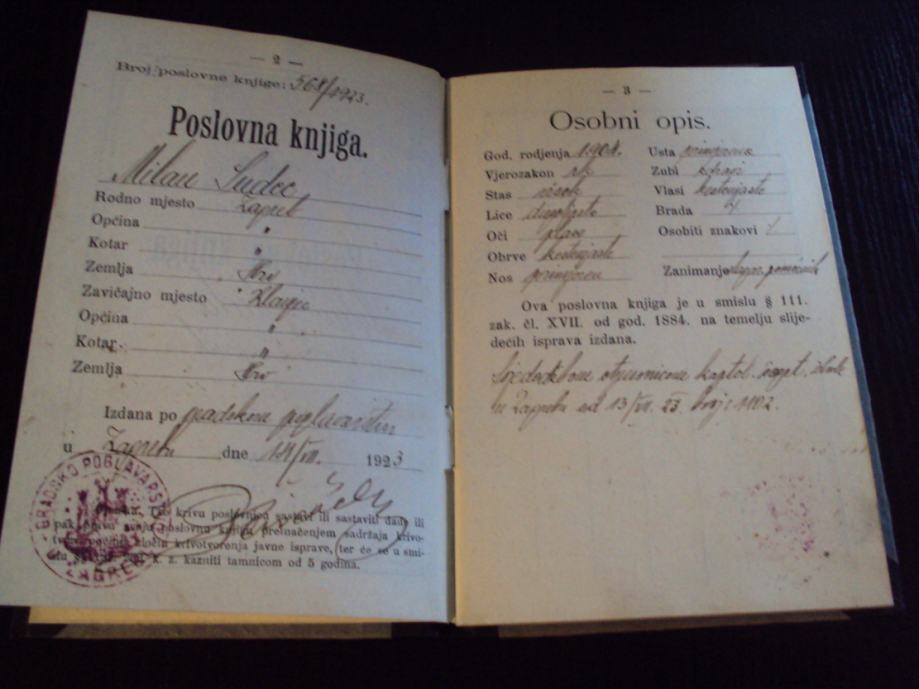 — 2 —
Broj poslovne knjige: 568/1923.
Poslovna knjiga.
Milan
Rodno mjesto Zagreb
Općina "
Kotar "
Zemlja Hrv
Zavičajno mjesto
Općina "
Kotar "
Zemlja Hrv
Izdana po gradskom poglavarstvu
u Zagrebu dne 14/VII. 1923
krivu poslovnicu sastavi ili sastaviti dade ili
poslovnu knjigu preinačenjem sadržaja krivo-
krivotvorenja javne isprave, ter će se u smi-
k. z. kazniti tamnicom od 5 godina.
GRADSKO POGLAVARSTVO
ZAGREB
— 3 —
Osobni opis.
God. rodjenja 1904. Usta primjerena
Vjerozakon rk Zubi zdravi
Stas visok Vlasi kestenjaste
Lice duguljasto Brada
Oči plave Osobiti znakovi
Obrve kestenjaste
Nos primjeren Zanimanje pomoćnik
Ova poslovna knjiga je u smislu § 111.
zak. čl. XVII. od god. 1884. na temelju slije-
dećih isprava izdana.
Svjedodžbom
u Zagrebu od 13/VII. 23. broj: 1102.